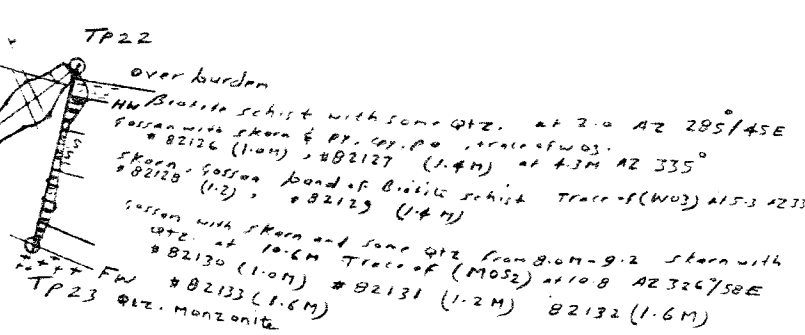 TP22
over burden
HW Biotite schist with some Qtz. at 2.0 AZ 285°/45E
Gossan with skarn & py, cpy, po, trace of WO3.
#82126 (1.0M), #82127 (1.4M) at 4.3M AZ 335°
Skarn, Gossan band of Biotite schist Trace of (WO3) at 5.3 AZ33
#82128 (1.2), #82129 (1.4M)
Gossan with skarn and some Qtz from 8.0M-9.2 skarn with
Qtz. at 10.6M Trace of (MOS2) at 10.8 AZ 326°/58E
#82130 (1.0M) #82131 (1.2M) 82132 (1.6M)
FW #82133 (1.6M)
TP23 Qtz. Monzonite